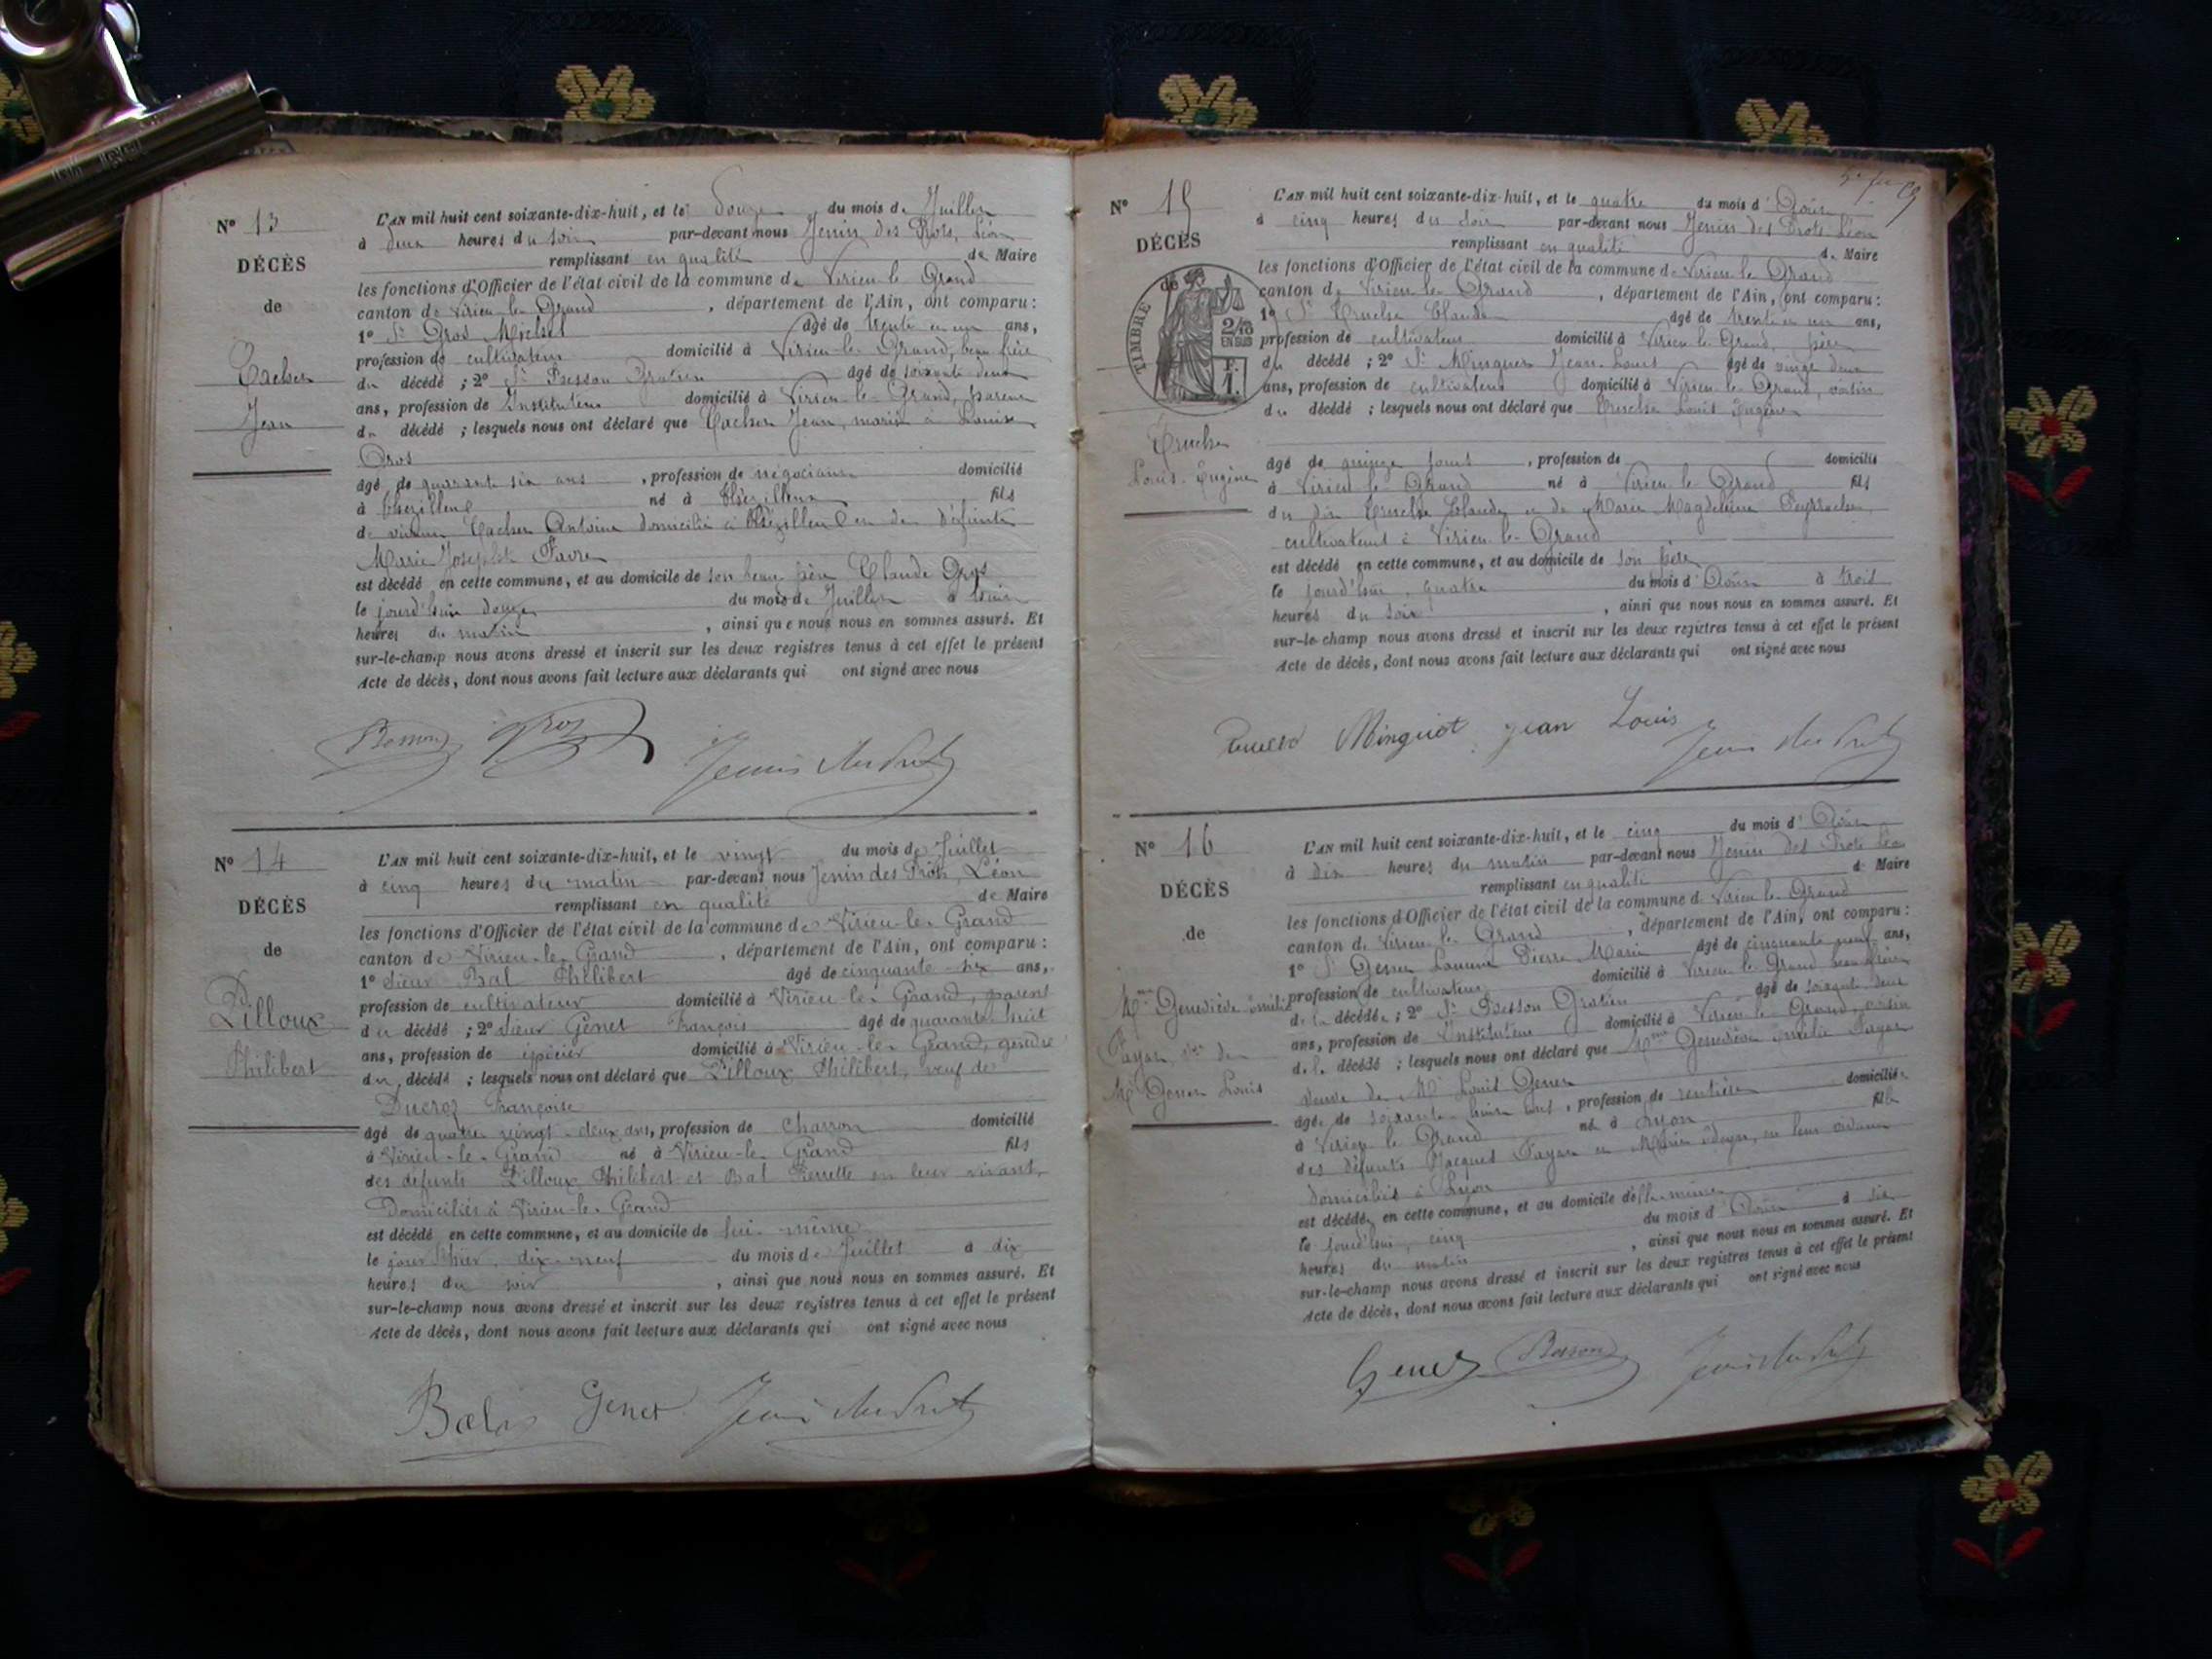 N° 13
DÉCÈS
de
Cacher
Jean
L'AN mil huit cent soixante-dix-huit, et le douze du mois de Juillet
à deux heures du soir par-devant nous Jenin des Prots, Léon
remplissant en qualité de Maire
les fonctions d'Officier de l'état civil de la commune de Virieu-le-Grand
canton de Virieu-le-Grand, département de l'Ain, ont comparu :
1° Sr Gros Michel âgé de trente et un ans,
profession de cultivateur domicilié à Virieu-le-Grand, beau frère
du décédé ; 2° Sr Besson Gratien âgé de soixante deux
ans, profession de Instituteur domicilié à Virieu-le-Grand, parent
du décédé ; lesquels nous ont déclaré que Cacher Jean, marié à Louise
Gros
âgé de quarante six ans, profession de négociant domicilié
à Thézillieu né à Thézillieu fils
de vivant Cacher Antoine domicilié à Thézillieu et de défunte
Marie Josephte Favre
est décédé en cette commune, et au domicile de son beau-père Claude Gros
le jourd'hui douze du mois de Juillet à
heures du matin, ainsi que nous nous en sommes assuré. Et
sur-le-champ nous avons dressé et inscrit sur les deux registres tenus à cet effet le présent
Acte de décès, dont nous avons fait lecture aux déclarants qui ont signé avec nous
Besson Gros Jenin des Prots
N° 14
DÉCÈS
de
Lilloux
Philibert
L'AN mil huit cent soixante-dix-huit, et le vingt du mois de Juillet
à cinq heures du matin par-devant nous Jenin des Prots, Léon
remplissant en qualité de Maire
les fonctions d'Officier de l'état civil de la commune de Virieu-le-Grand
canton de Virieu-le-Grand, département de l'Ain, ont comparu :
1° Sieur Bal Philibert âgé de cinquante-six ans,
profession de cultivateur domicilié à Virieu-le-Grand, parent
du décédé ; 2° Sieur Genet François âgé de quarante huit
ans, profession de épicier domicilié à Virieu-le-Grand, gendre
du décédé ; lesquels nous ont déclaré que Lilloux Philibert, veuf de
Ducroz Françoise
âgé de quatre vingt-deux ans, profession de Charron domicilié
à Virieu-le-Grand né à Virieu-le-Grand fils
des défunts Lilloux Philibert et Bal Pierrette en leur vivant
Domiciliés à Virieu-le-Grand
est décédé en cette commune, et au domicile de lui-même
le jour d'hier, dix-neuf du mois de Juillet à dix
heures du soir, ainsi que nous nous en sommes assuré. Et
sur-le-champ nous avons dressé et inscrit sur les deux registres tenus à cet effet le présent
Acte de décès, dont nous avons fait lecture aux déclarants qui ont signé avec nous
Genet Jenin des Prots
N° 15
DÉCÈS
de
TIMBRE
2/10
EN SUS
Truche
Louis-Eugène
L'AN mil huit cent soixante-dix-huit, et le quatre du mois d'Août
à cinq heures du soir par-devant nous Jenin des Prots Léon
remplissant en qualité de Maire
les fonctions d'Officier de l'état civil de la commune de Virieu-le-Grand
canton de Virieu-le-Grand, département de l'Ain, ont comparu :
1° Sr Truche Claude âgé de trente et un ans,
profession de cultivateur domicilié à Virieu-le-Grand, père
du décédé ; 2° Sr Minguet Jean-Louis âgé de vingt deux
ans, profession de cultivateur domicilié à Virieu-le-Grand, voisin
du décédé ; lesquels nous ont déclaré que Truche Louis Eugène
âgé de quinze jours, profession de domicilié
à Virieu-le-Grand né à Virieu-le-Grand fils
du dit Truche Claude et de Marie Magdeleine
cultivateurs à Virieu-le-Grand
est décédé en cette commune, et au domicile de son père
le jourd'hui, quatre du mois d'Août à trois
heures du soir, ainsi que nous nous en sommes assuré. Et
sur-le-champ nous avons dressé et inscrit sur les deux registres tenus à cet effet le présent
Acte de décès, dont nous avons fait lecture aux déclarants qui ont signé avec nous
Minguet jean Louis Jenin des Prots
N° 16
DÉCÈS
de
Mme Geneviève Emilie
Payan Vve de
Mr Genet Louis
L'AN mil huit cent soixante-dix-huit, et le cinq du mois d'Août
à dix heures du matin par-devant nous Jenin des Prots Léon
remplissant en qualité de Maire
les fonctions d'Officier de l'état civil de la commune de Virieu-le-Grand
canton de Virieu-le-Grand, département de l'Ain, ont comparu :
1° Sr Genet Laurent Pierre Marie âgé de cinquante neuf ans,
profession de cultivateur domicilié à Virieu-le-Grand beau frère
de la décédée ; 2° Sr Besson Gratien âgé de soixante deux
ans, profession de Instituteur domicilié à Virieu-le-Grand, voisin
de la décédé ; lesquels nous ont déclaré que Mme Geneviève Emilie Payan
veuve de Mr Louis Genet
âgée de soixante-huit ans, profession de rentière domiciliée
à Virieu-le-Grand née à Lyon fille
des défunts Jacques Payan et Marie en leur vivant
domiciliés à Lyon
est décédée en cette commune, et au domicile d'elle-même
le jourd'hui, cinq du mois d'Août à six
heures du matin, ainsi que nous nous en sommes assuré. Et
sur-le-champ nous avons dressé et inscrit sur les deux registres tenus à cet effet le présent
Acte de décès, dont nous avons fait lecture aux déclarants qui ont signé avec nous
Genet Besson Jenin des Prots